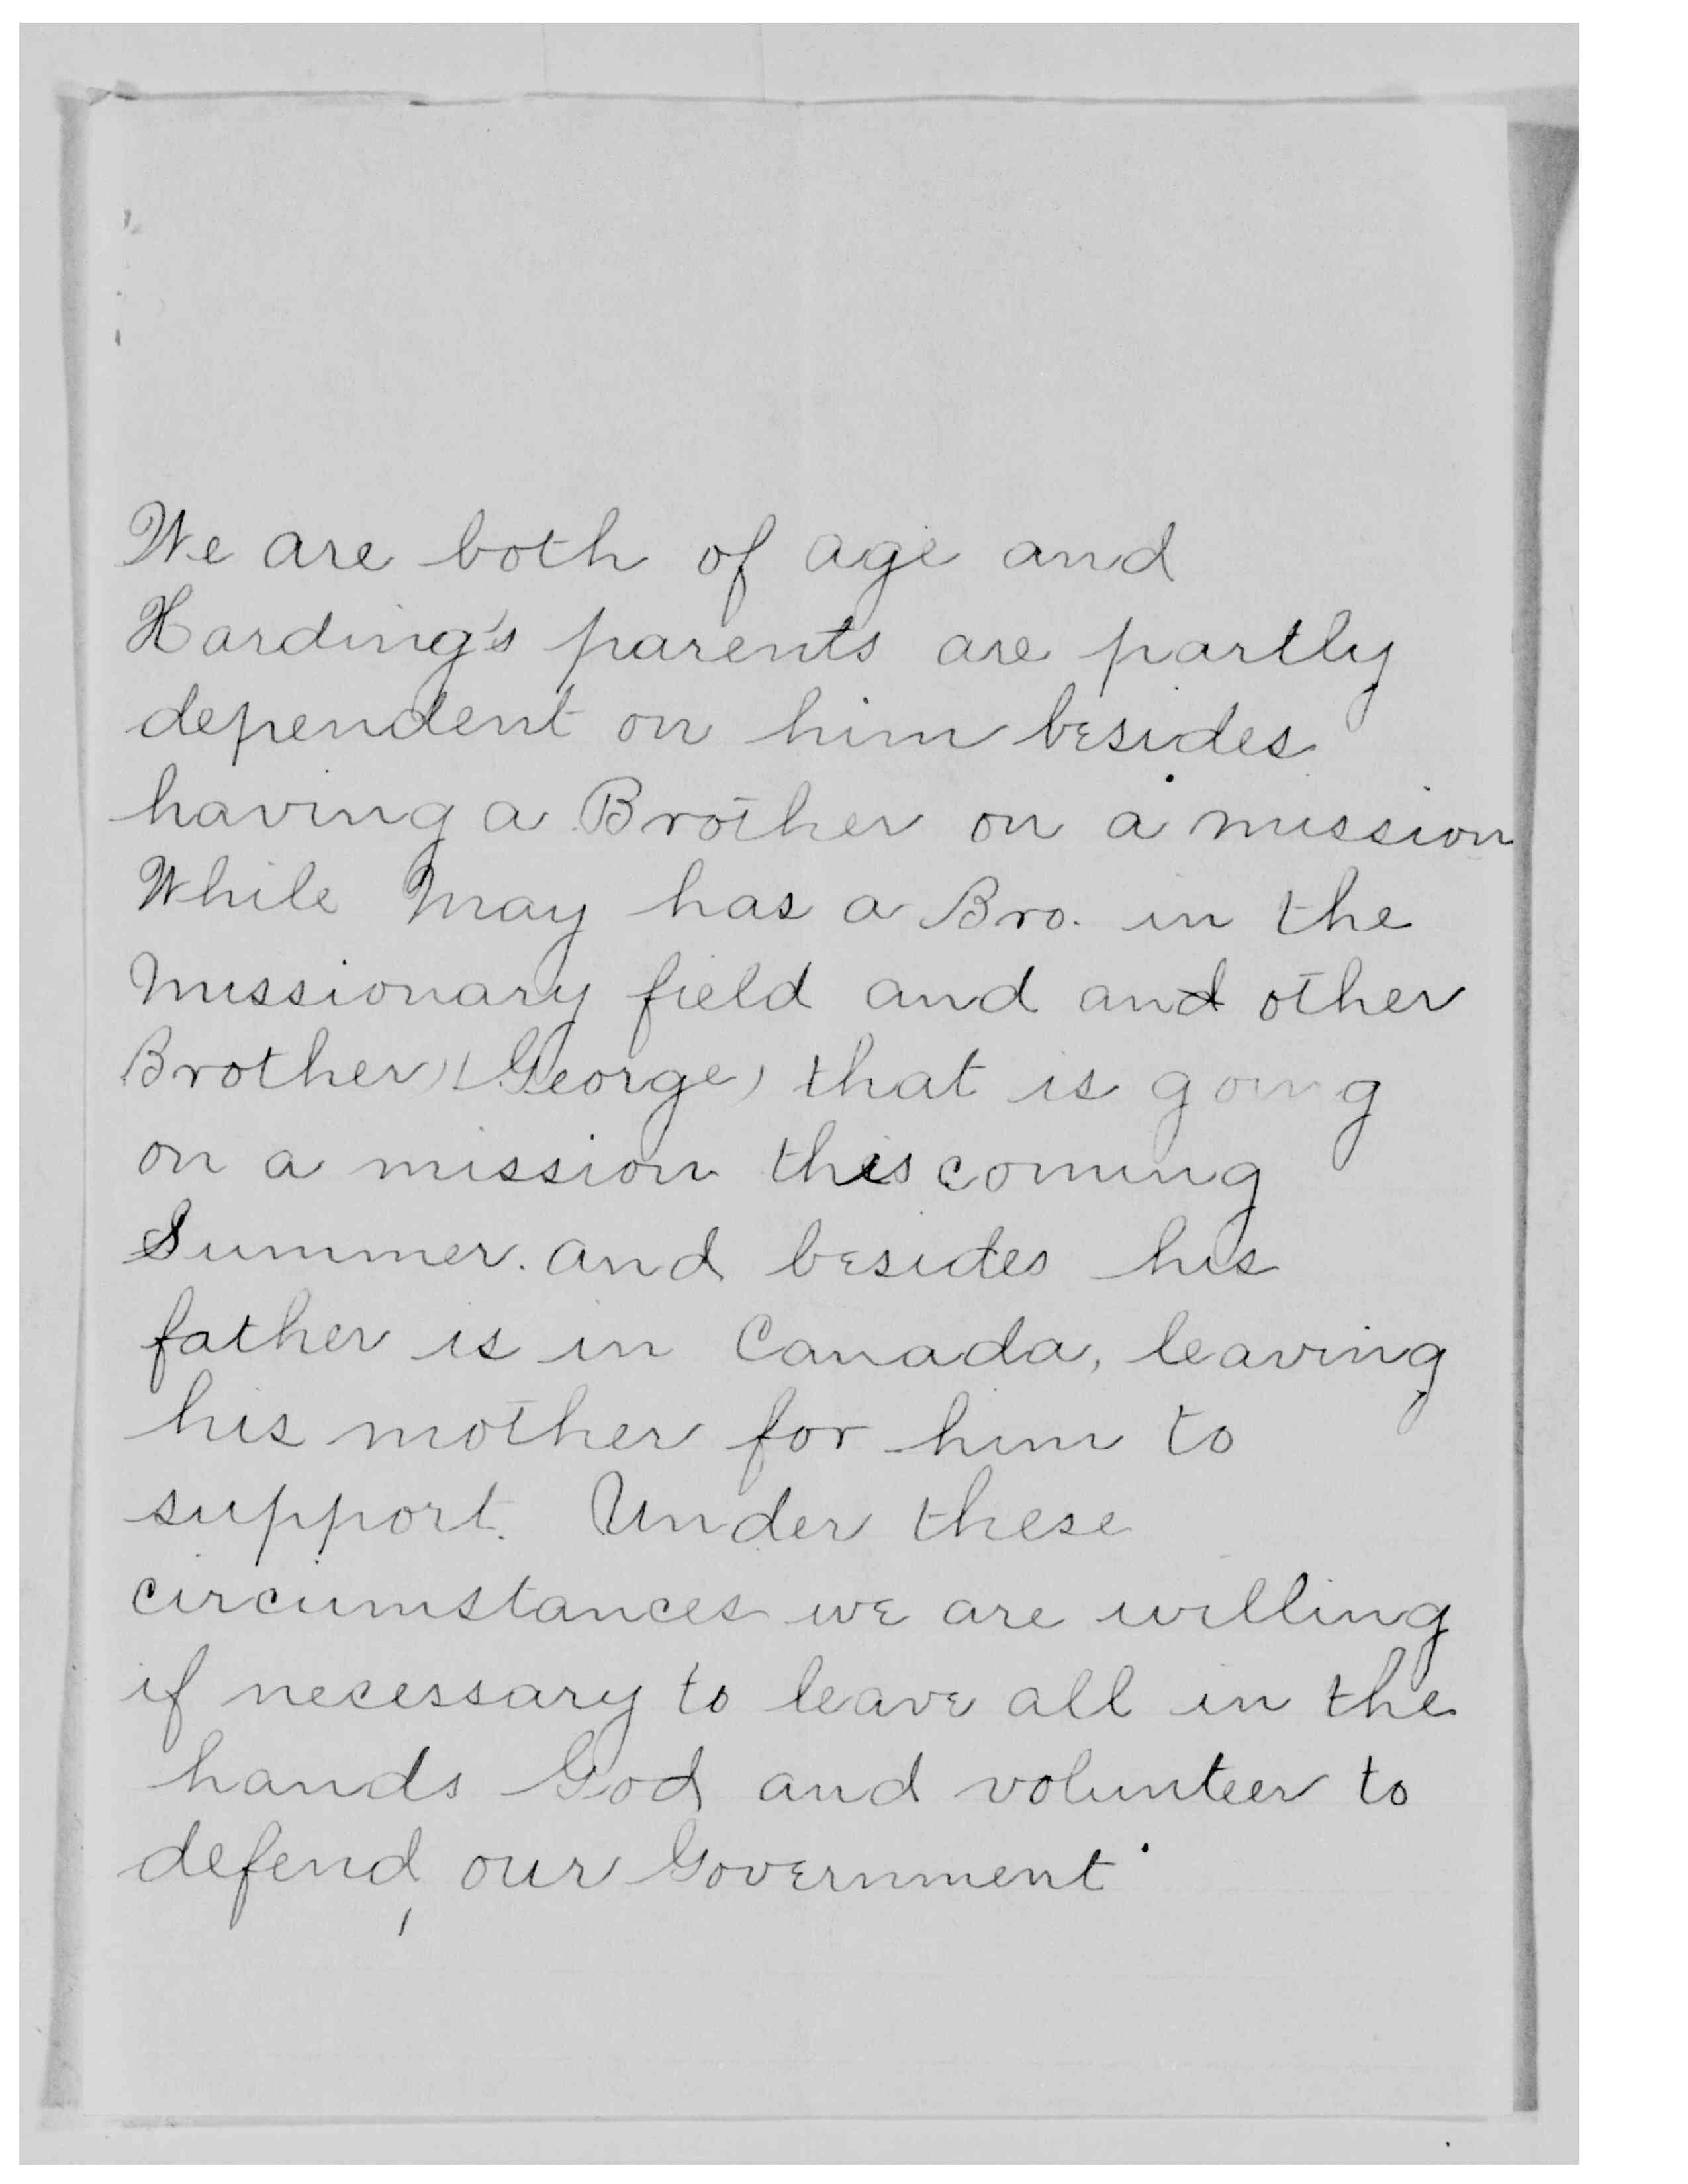 We are both of age and
Harding's parents are partly
dependent on him besides
having a Brother on a mission
While May has a Bro. in the
Missionary field and and other
Brother (George) that is going
on a mission this coming
Summer. and besides his
father is in Canada, leaving
his mother for him to
support. Under these
circumstances we are willing
if necessary to leave all in the
hands God and volunteer to
defend, our Government.